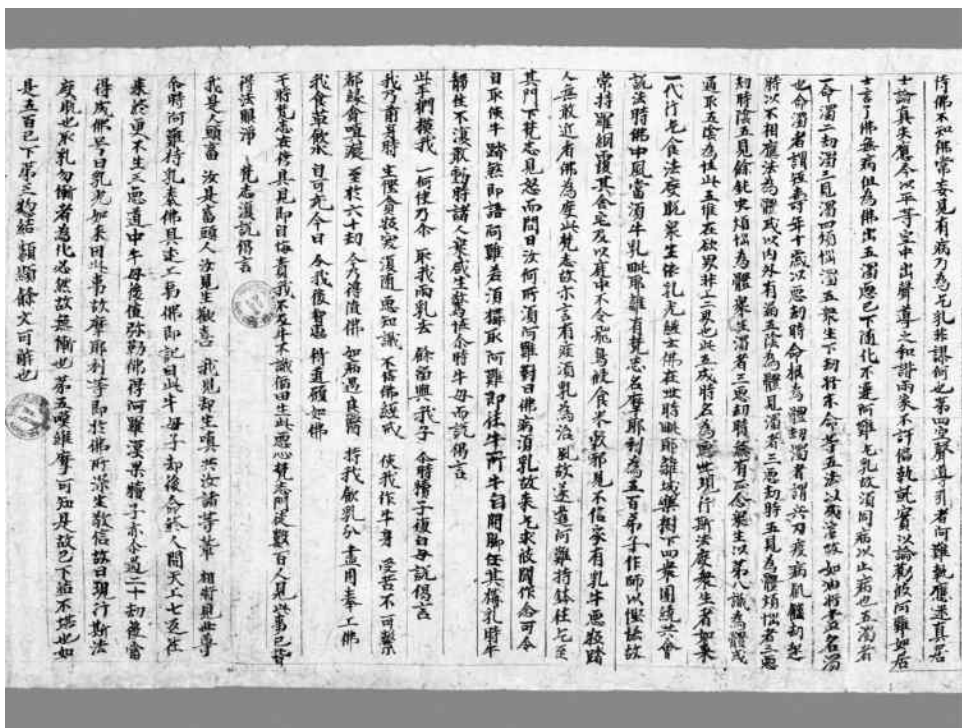 侍佛不知佛常妄見有病乃為乞乳非謀何也第四空聲導引者阿難執應迷真居
士論真失應今以平等空中出聲導之和諧兩家不許偏執就實以論勸彼阿難如居
士言了佛無病但為佛出五濁惡已下隨化不遷阿難乞乳故須同病以止病也五濁者
一命濁二劫濁三見濁四煩惱濁五眾生下劫于末命等五法以成滓故如油將盡名濁
也命濁者謂短壽年十歲以惡劫時命根為體劫濁者謂兵刃疫病飢饉劫起
時以不相應法為體或以內外有漏五陰為體見濁者三惡劫時五見為體煩惱者三惡
劫時除五見餘鈍使煩惱為體眾生濁者三惡劫時無有正念眾生以第八識為體或
通取五陰為性此五唯在欲界非上二界也此五成時名為惡世現行斯法度眾生者如來
一代行乞食法度脫眾生依乳光經云佛在世時毗耶離城樂樹下四眾圍繞共會
說法時佛中風當須牛乳毗耶離有梵志名摩耶利為五百弟子作師以慳法故
常持羅網覆其舍宅及以庭中不令飛鳥侵食米穀邪見不信家有乳牛惡狡踏
人無敢近者佛為度此梵志故示言有疾須乳為治風故遂遣阿難持鉢往乞至
其門下梵志見怒而問曰汝何所須阿難對曰佛病須乳故來乞求彼聞作念可令
自取使牛踏煞即語阿難若須擲取阿難即往牛所牛自開脚任其構乳時牛
韌性不復敢動時諸人眾咸生驚怪尒時牛母而說偈言
此手捫摸我　一何使乃尒　取我兩乳去　餘留與我子　尒時犢子復白母說偈言
我乃前身時　生慳貪狡突　復隨惡知識　不信佛經戒　使我作牛身　受苦不可祭
都緣貪喧癡　至於六十劫　今乃得值佛　如病遇良醫　持我飲乳分　盡用奉上佛
我食草飲水　自可充今日　令我後智惠　得道願如佛
于時梵志在傍具見即自悔責我不及牛不識宿因生此惡心梵志門徒數百人見此事已皆
得法眼淨　梵志復說偈言
我是人頭畜　汝是畜頭人　汝見生歡喜　我見却生嗔　共汝諸等輩　相將見世尊
尒時阿難持乳奉佛具述上為佛即記曰此牛母子却後命終人間天上七返往
來終更不生三惡道中牛母後值彌勒佛得阿羅漢果犢子亦尒過二十劫後當
得成佛号曰乳光如來因此事故摩耶利等即於佛所深生敬信故曰現行斯法
度順也取乳勿慚者為化必然故無慚也第五嘆維摩可知是故已下結不堪也如
是五百已下第三揔結類顯餘文可解也